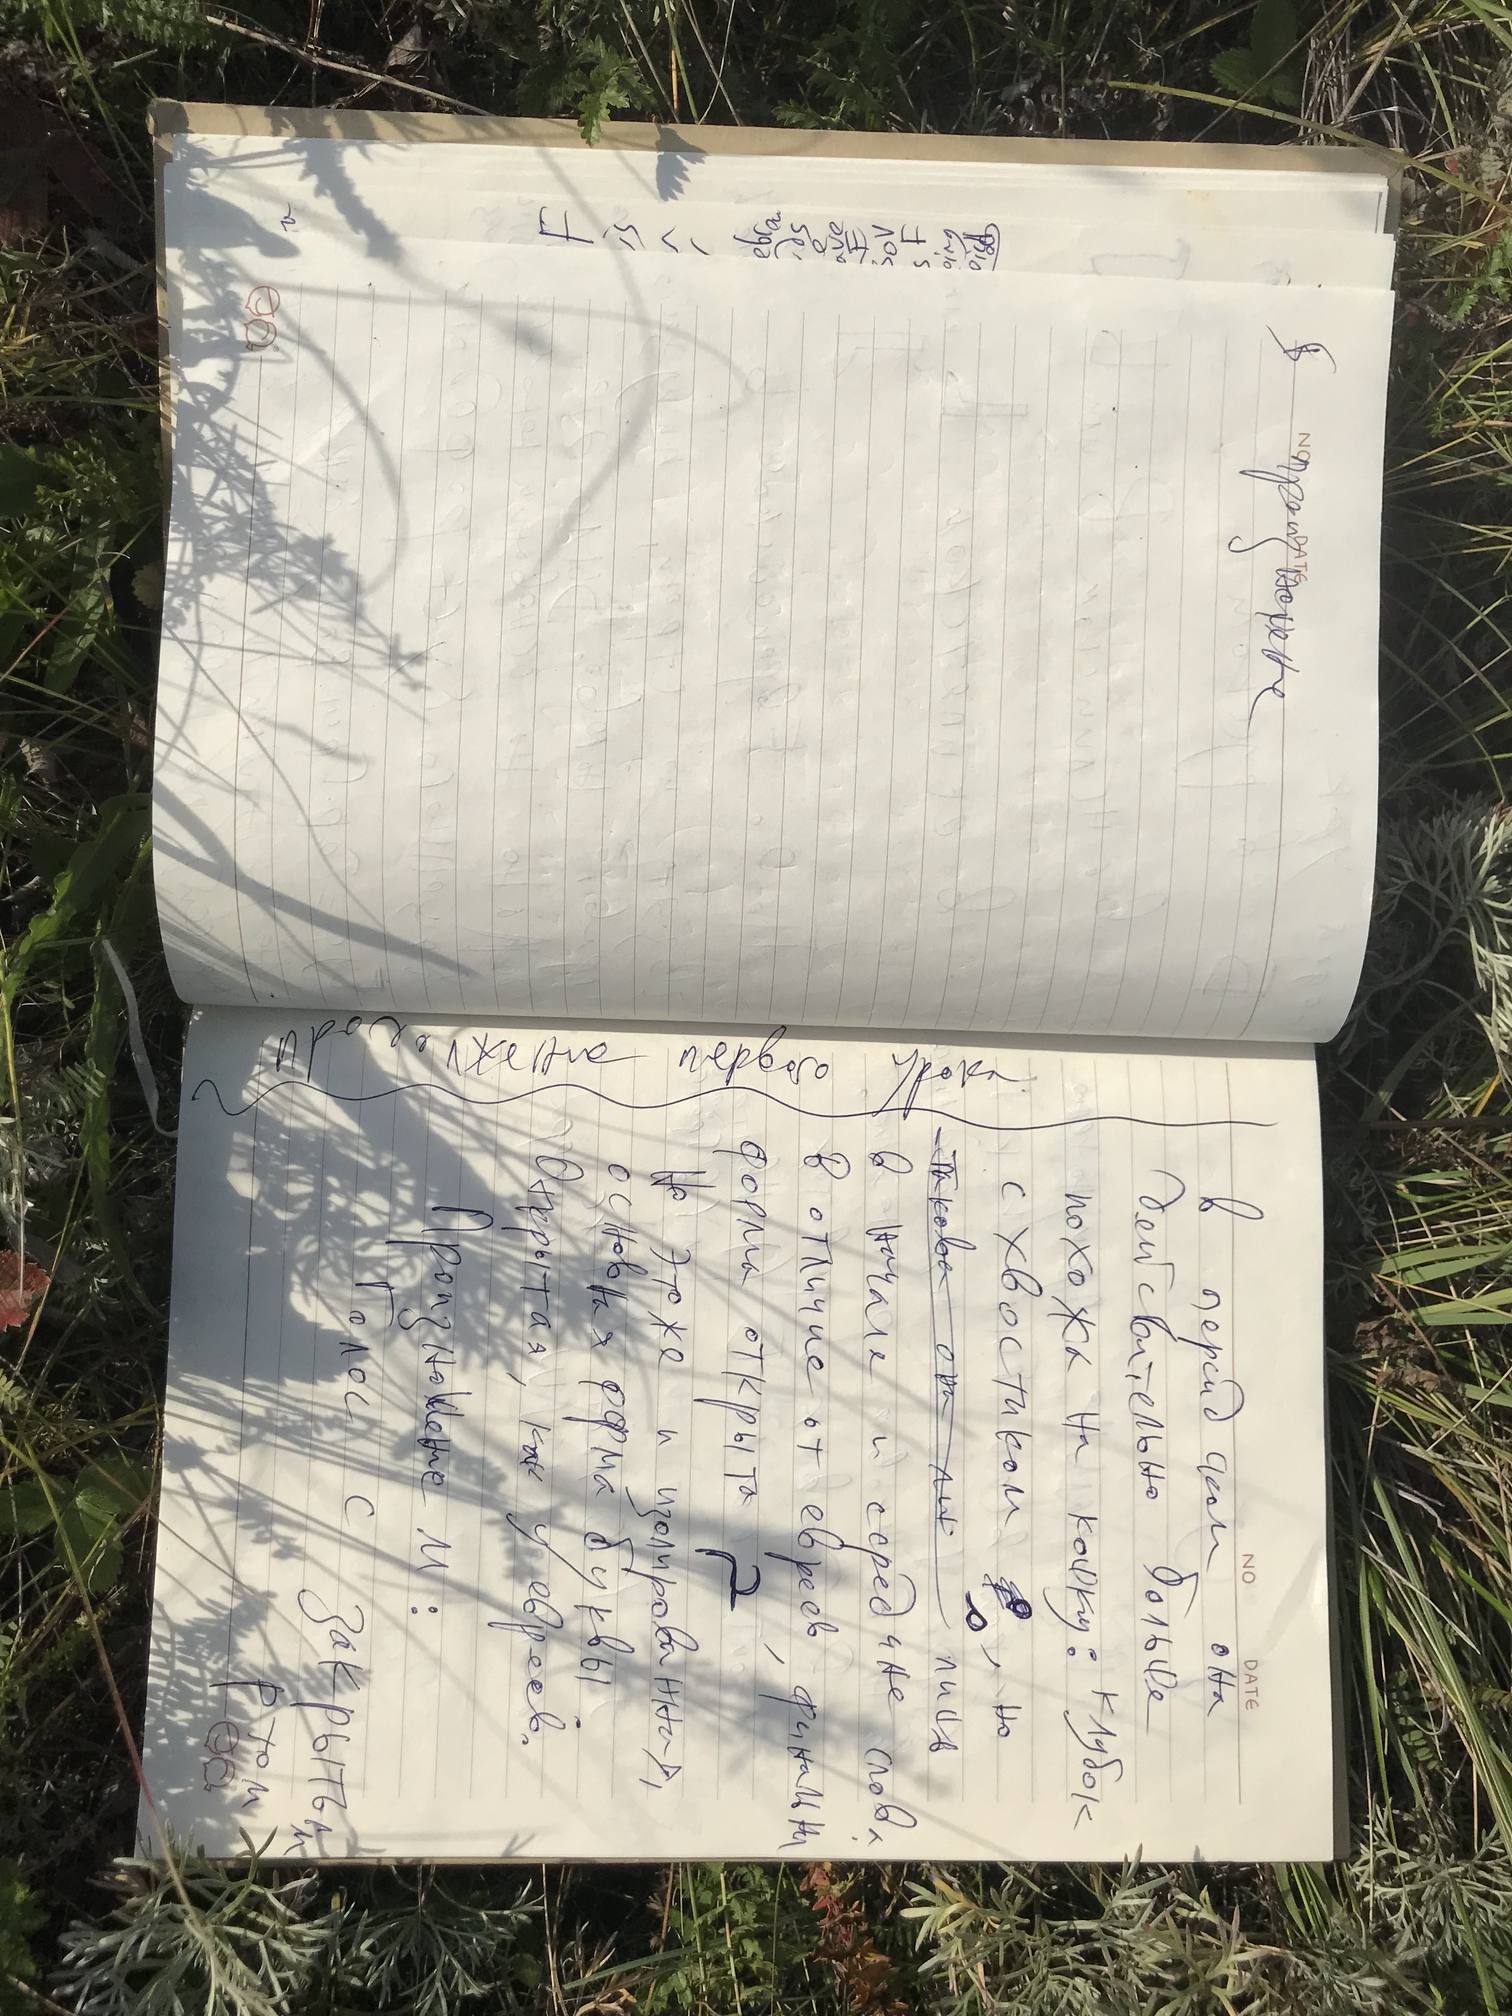 §
произношение
NO
DATE
продолжение первого урока
NO
DATE
В перед чем она
действительно больше
похожа на кошку: клубок
с хвостиком , но
такова он для лишь
В начале и середине слова
В отличие от евреев, финальн
форма открыта
Но это же и изолированная,
основная форма буквы
Открытая, как у евреев.
Произношение м:
Голос с закрытым
ртом